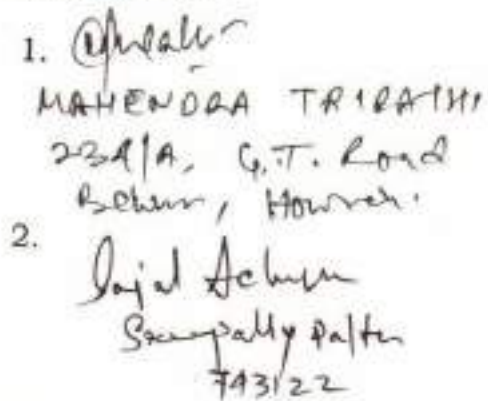 1.
MAHENDRA TRIPATHI
234/A, G.T. Road
Belur, Howrah.
2.
Sajal Acharya
Palta
743122